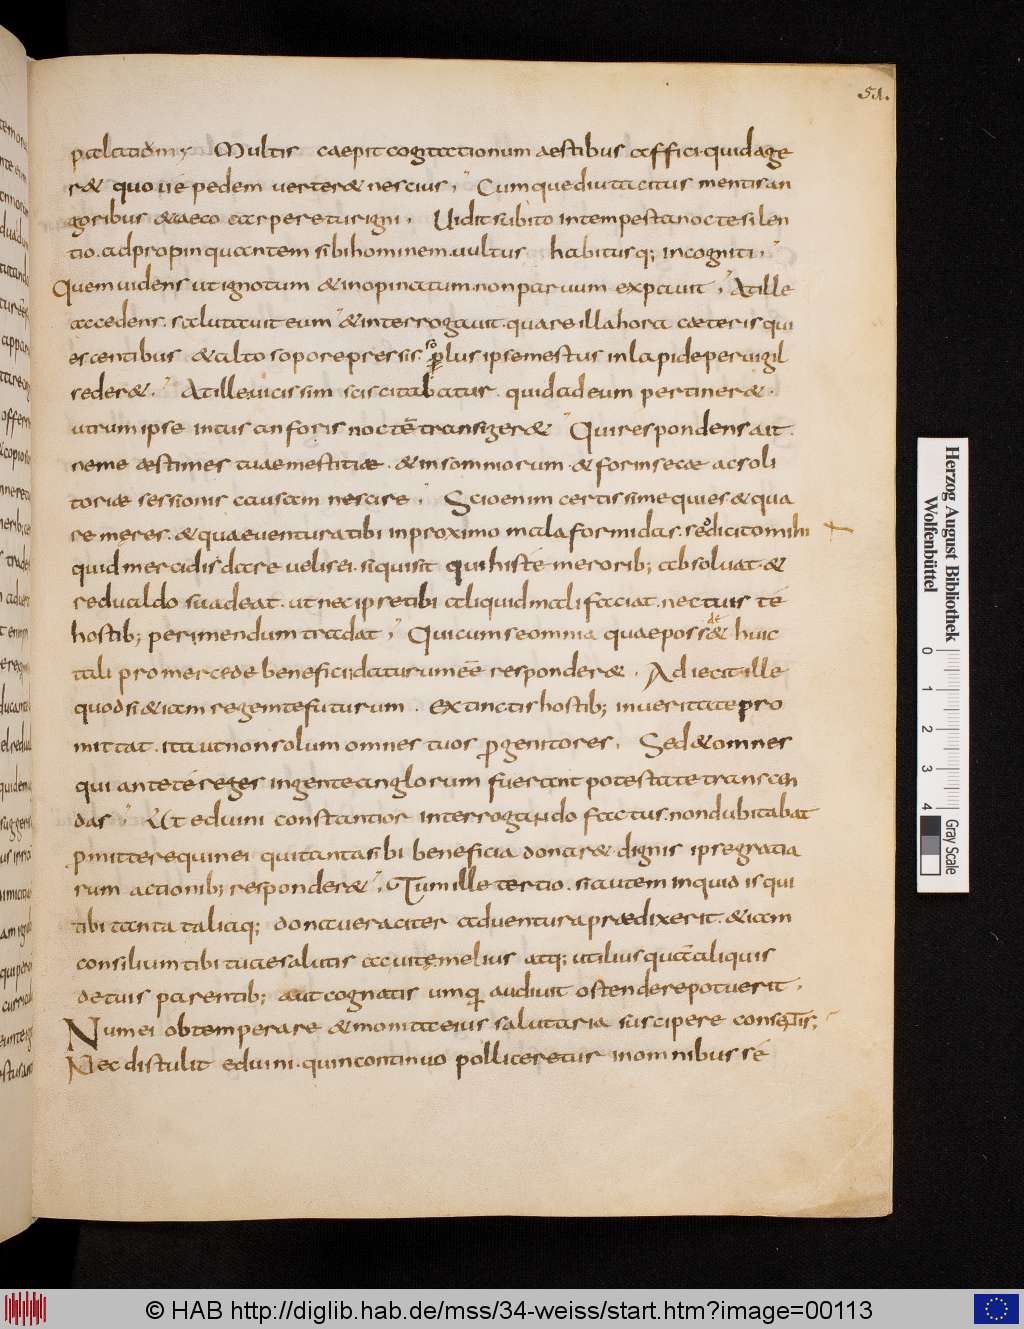 51.
palatium; Multis caepit cogitationum aestibus affici. quid age
r& quo ue pedem verter& nescius; Cumque diu tacitus mentis an
goribus & caeco carperetur igni. Uidit subito intempesta nocte silen
tio. adpropinquantem sibi hominem. uultus habitusq; incogniti;
Quem uidens ut ignotum & inopinatum. non paruum expauit; At ille
accedens. salutauit eum & interrogauit. quare illa hora caeteris qui
escentibus & alto sopore pressis. solus ipse mestus in lapide peruigil
seder&. At ille uicissim sciscitabatur. quid ad eum pertiner&.
utrum ipse intus an foris noctē transiger& Qui respondens ait.
ne me aestimes tuae mestitiae. & insomniorum. & forinsecae ac soli
toriae sessionis causam nescire; Scio enim certissime qui es & qua
re meres. & quae uentura tibi in proximo mala formidas. sed dicito mihi
quid mercidis dare uelis ei. siquis sit qui his te merorib; absoluat. &
redualdo suadeat. ut nec ipse tibi aliquid mali faciat. nec tuis te
hostib; perimendum tradat; Qui cum se omnia quae poss& huic
tali pro mercede beneficii daturum eēe responder&. Adiecit ille
quod si &iam regem te futurum. extinctis hostib; in ueritate pro
mittat. ita ut non solum omnes tuos progenitores. Sed & omnes
qui ante te reges in gente anglorum fuerant potestate transcen
das; At eduini constantior interrogando factus. non dubitabat
promittere quin ei qui tanta sibi beneficia donar& dignis ipse gratia
rum actionib; responder&; Tum ille tertio. si autem inquid is qui
tibi tanta taliaq; dona ueraciter aduentura praedixerit. &iam
consilium tibi tuae salutis ac uitę melius atq; utilius quā aliquis
de tuis parentib; aut cognatis umquam audiuit ostendere potuerit.
Num ei obtemperare & monita eius salutaria suscipere consentis;
Nec distulit eduini. quin continuo polliceretur in omnibus se
Herzog August Bibliothek
Wolfenbüttel
0 1 2 3 4
Gray Scale
© HAB http://diglib.hab.de/mss/34-weiss/start.htm?image=00113